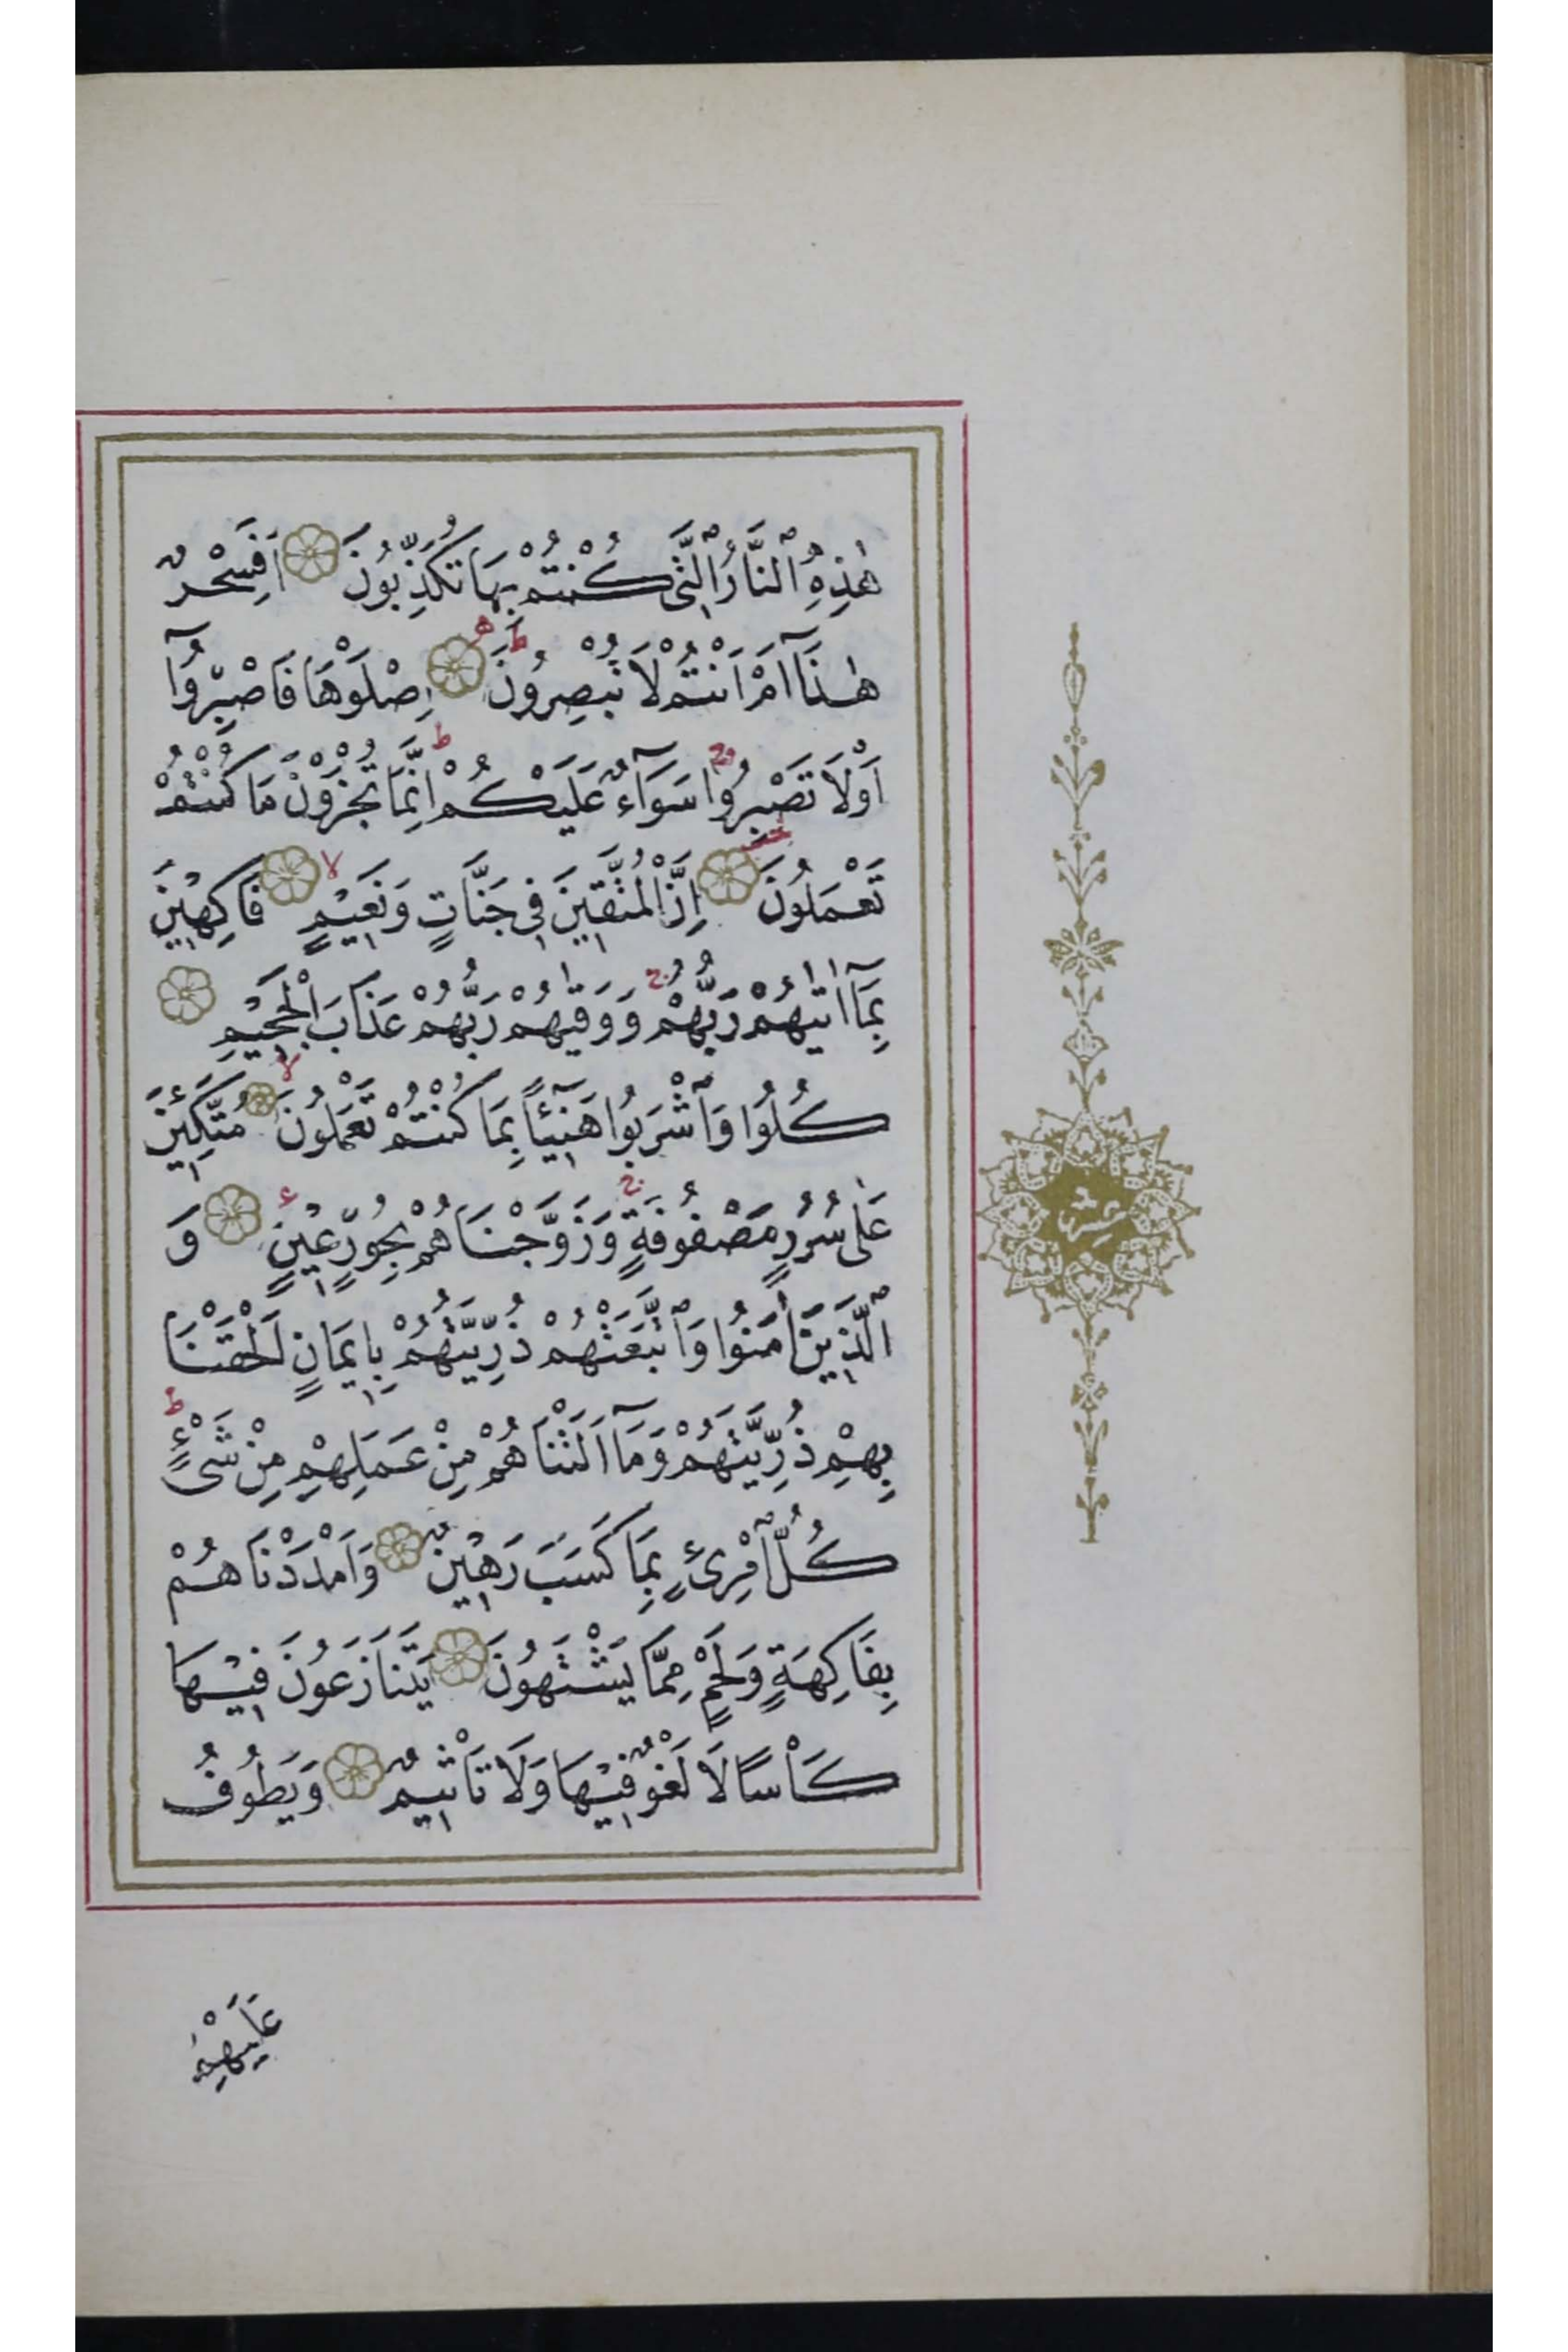 هٰذِهِ ٱلنَّارُ ٱلَّتِي كُنْتُمْ بِهَا تُكَذِّبُونَ اَفَسِحْرٌ
هٰذَٓا اَمْ اَنْتُمْ لَا تُبْصِرُونَ ط ه اِصْلَوْهَا فَاصْبِرُوٓا
اَوْلَا تَصْبِرُوا ج سَوَٓاءٌ عَلَيْكُمْ ط اِنَّمَا تُجْزَوْنَ مَا كُنْتُمْ
تَعْمَلُونَ اِنَّ الْمُتَّقِينَ فِي جَنَّاتٍ وَنَعِيمٍ لا فَاكِهِينَ
بِمَٓا اٰتٰيهُمْ رَبُّهُمْ ج وَوَقٰيهُمْ رَبُّهُمْ عَذَابَ الْجَحِيمِ
كُلُوا وَٱشْرَبُوا هَنِٓيئًا بِمَا كُنْتُمْ تَعْمَلُونَ لا مُتَّكِئِينَ
عَلٰى سُرُرٍ مَصْفُوفَةٍ ج وَزَوَّجْنَاهُمْ بِحُورٍ عِينٍ وَ
ٱلَّذِينَ اٰمَنُوا وَٱتَّبَعَتْهُمْ ذُرِّيَّتُهُمْ بِاِيمَانٍ اَلْحَقْنَا
بِهِمْ ذُرِّيَّتَهُمْ وَمَٓا اَلَتْنَاهُمْ مِنْ عَمَلِهِمْ مِنْ شَيْءٍ ط
كُلُّ ٱمْرِئٍ بِمَا كَسَبَ رَهِينٌ وَاَمْدَدْنَاهُمْ
بِفَاكِهَةٍ وَلَحْمٍ مِمَّا يَشْتَهُونَ يَتَنَازَعُونَ فِيهَا
كَأْسًا لَا لَغْوٌ فِيهَا وَلَا تَأْثِيمٌ وَيَطُوفُ
عَلَيْهِمْ
عشر